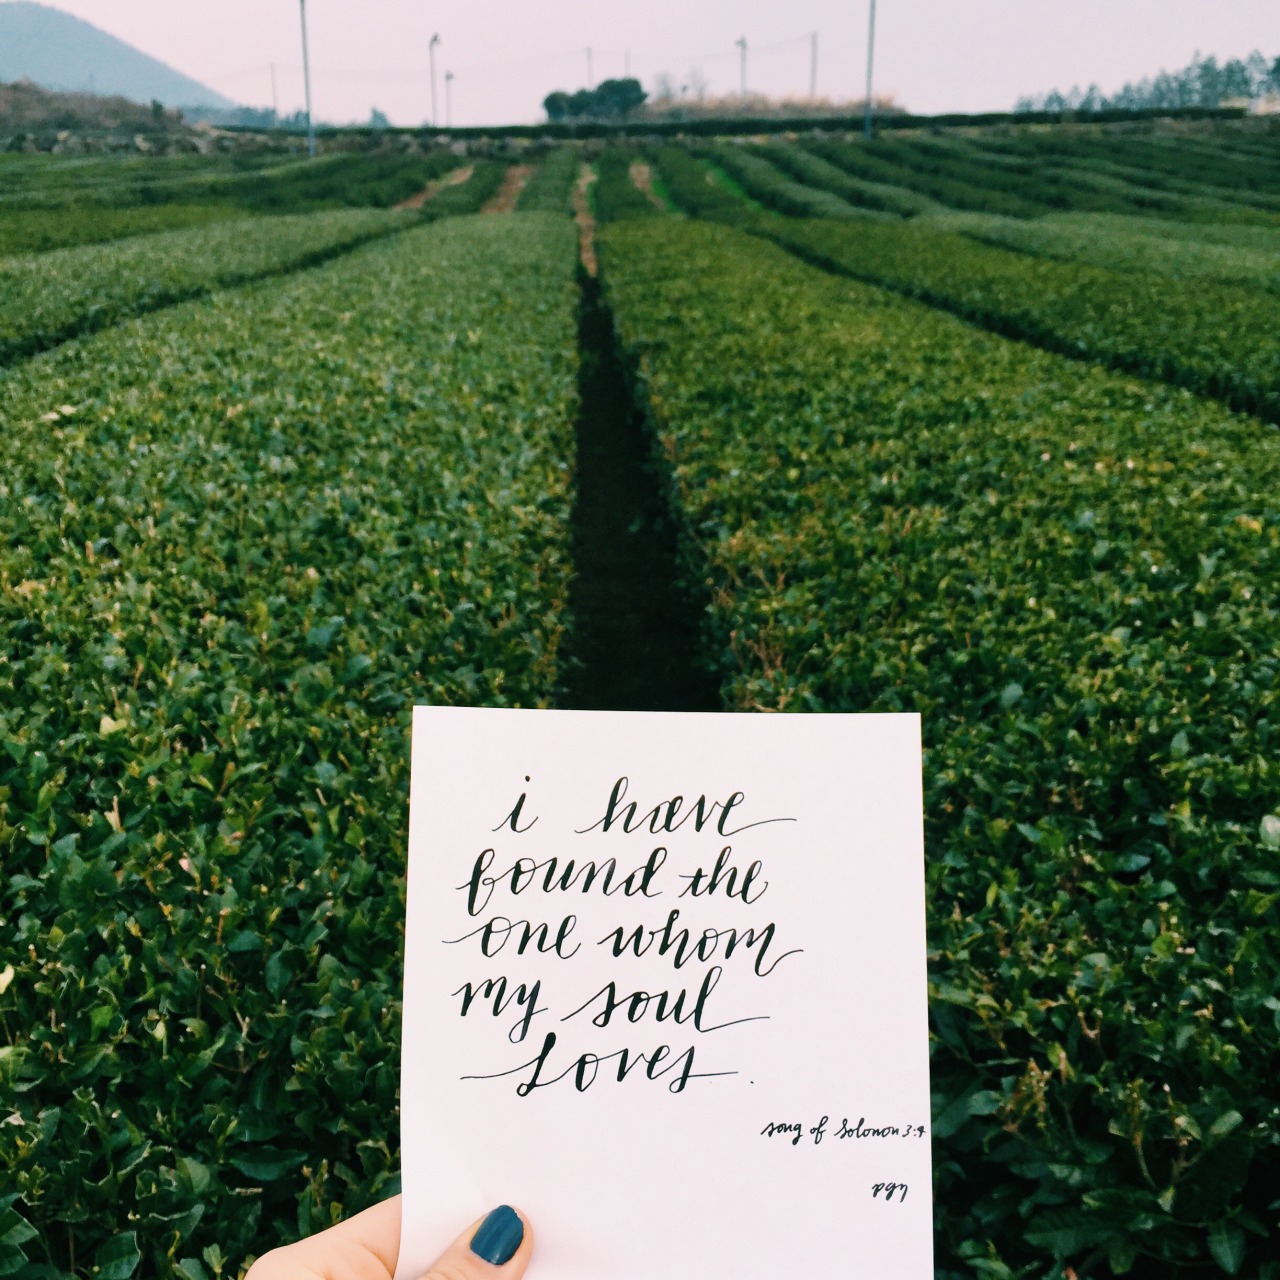 i have
found the
one whom
my soul
loves.
song of Solomon 3:4
pgy